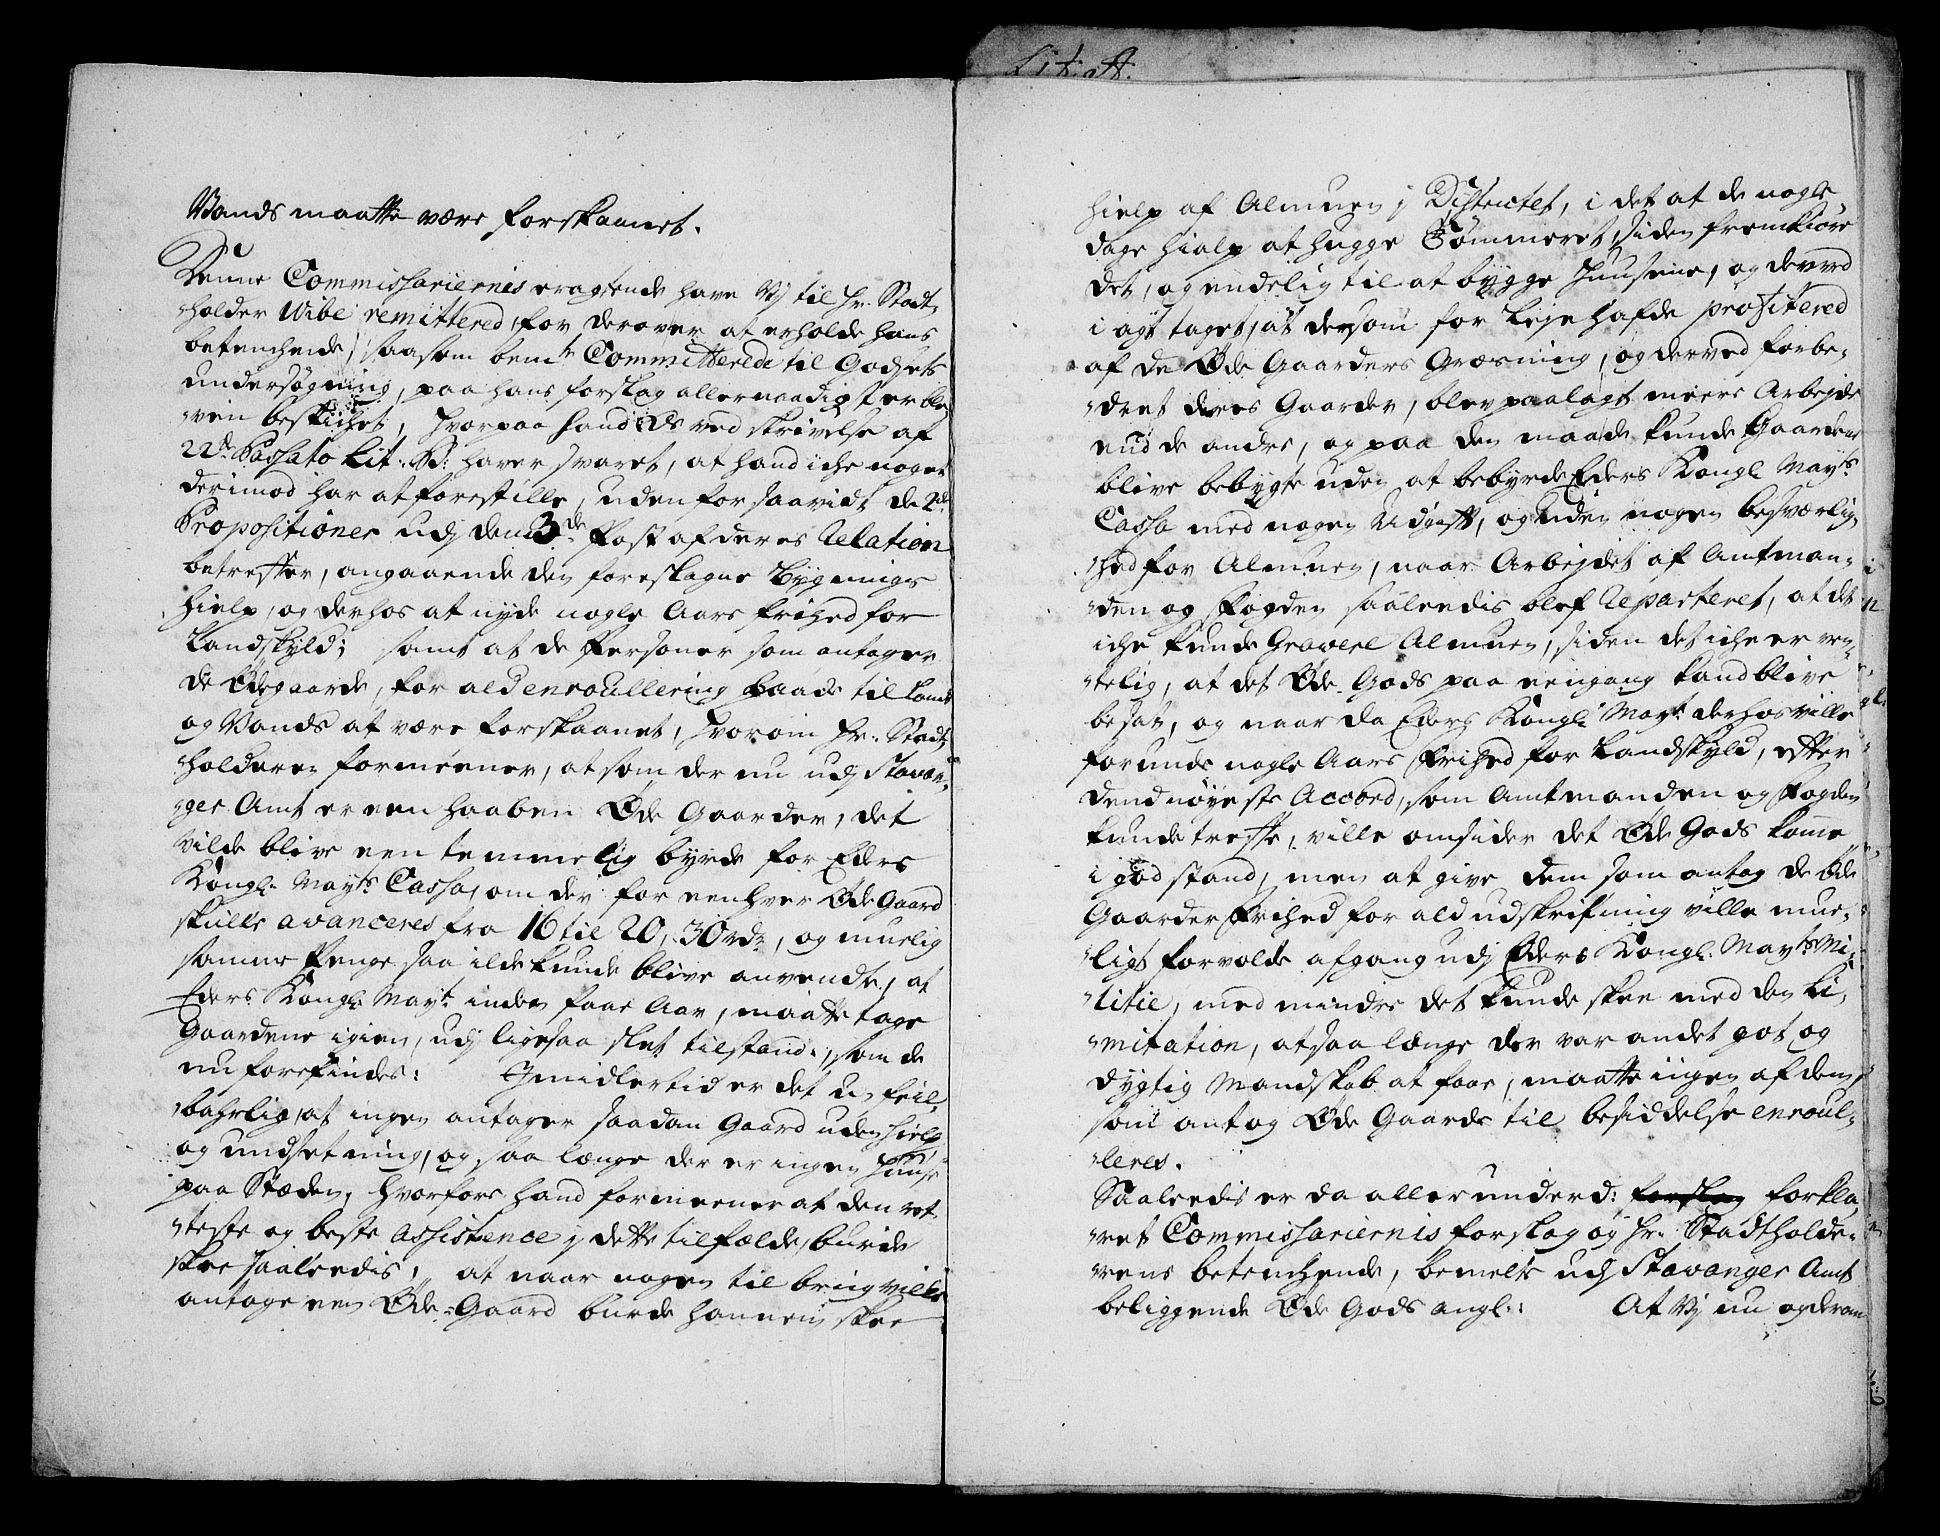 Lit. A.
Vands maatte være forskaanet.
Denne Commissariernis eragtende have Vj til Hr. Stadt-
holder Wibe remittered, for derover at erholde hans
betenchende, saasom bemte Committerede til Godsets
undersøgning, paa hans forslag allernaadigst er ble-
ven beskichet, hvorpaa hand os ved skrivelse af
22de Passato Lit. B: haver svaret, at hand iche noget
derimod har at forestille, uden for saavidt de 2de
Propositioner udj den 3de Post af deres Relation
betreffer, angaaende den foreslagne Bygnings
hielp, og derhos at nyde nogle Aars frihed for
Landskyld; samt at de Personer som antager
de Ødegaarde, for ald enroullering baade til Lands
og Vands at være forskaanet, hvorom Hr. Stadt-
holderen formeener, at som der nu udj Stavan-
ger Amt er een haaben Øde Gaarder, det
vilde blive een temmelig byrde for Eders
Kongl. Mayts Cassa, om der for eenhver Øde Gaard
skulle avanceres fra 16 til 20, 30 rdr, og muelig
samme Penge saa ilde kunde blive anvendt, at
Eders Kongl. Mayt. inden faae Aar, maatte tage
Gaardene igien, udj ligesaa slet tilstand, som de
nu forefindes: Imidlertid er det u-feil-
bahrlig, at ingen antager saadan Gaard uden hielp
og undsetning, og saa længe der er ingen Huuse
paa Stæden, hvorfore hand formeener at den ret-
teste og beste Assistence j dette tilfælde, burde
skee saaleedis, at naar nogen til brug ville
antage een Øde-Gaard burde hannem skee
hielp af Almuen j Districtet, i det at de nogle
dage hialp at hugge Tømmeret, siden fremkiøre
det, og endelig til at bygge Huusene, og derved
i agt taget, at de som for Leje hafde profitered
af de Øde Gaarders Græsning, og derved forbe-
dret deres Gaarder, blev paalagt meere Arbejde
end de andre, og paa den maade kunde Gaardene
blive bebygte uden at bebyrde Eders Kongl Mayts
Cassa med nogen Udgift, og uden nogen besværlig-
hed for Almuen, naar Arbejdet af Amtman-
den og Fogden saaleedis blef Reparteret, at det
iche kunde Gravere Almuen, siden det iche er ven-
telig, at det Øde Gods paa eengang kand blive
besat, og naar da Eders Kongl. Mayt. derhos ville
forunde nogle Aars Frihed for Landskyld, effter
dend nøyeste Accord, som Amtmanden og Fogden
kunde treffe, ville omsider det Øde Gods komme
i god stand, men at give dem som antog de Øde
Gaarder Frihed for ald udskrifning ville mue-
ligt forvolde afgang udj Eders Kongl. Mayts Mi-
litie, med mindre det kunde skee med den Li-
mitation, at saa længe der var andet got og
dygtig Mandskab at faae, maatte ingen af dem,
som antog Øde Gaarde til besiddelse enroul-
leres.
Saaleedis er da allerunderd: forslag forkla-
ret Commissariernis forslag og Hr. Stadtholde-
rens betenchende, bemelte udj Stavanger Amt
beliggende Øde Gods angl: At Vj nu og derom